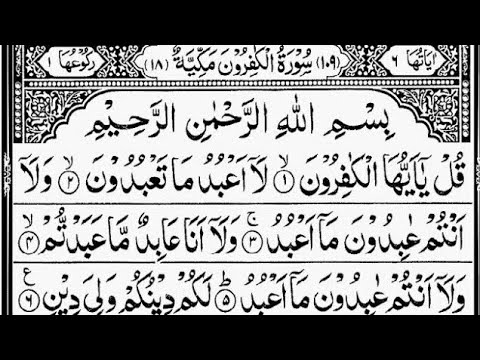 اٰيَاتُهَا ٦ (١٠٩) سُوْرَةُ الْكٰفِرُوْنَ مَكِّيَّةٌ (١٨) رُكُوْعُهَا ١
بِسْمِ اللّٰهِ الرَّحْمٰنِ الرَّحِيْمِ
قُلْ يٰۤاَيُّهَا الْكٰفِرُوْنَ ۙ‏﴿۱﴾ لَاۤ اَعْبُدُ مَا تَعْبُدُوْنَ ۙ‏﴿۲﴾ وَلَاۤ
اَنْتُمْ عٰبِدُوْنَ مَاۤ اَعْبُدُ ۚ‏﴿۳﴾ وَلَاۤ اَنَا عَابِدٌ مَّا عَبَدْتُّمْ ۙ‏﴿۴﴾
وَلَاۤ اَنْتُمْ عٰبِدُوْنَ مَاۤ اَعْبُدُ ؕ‏﴿۵﴾ لَكُمْ دِيْنُكُمْ وَلِىَ دِيْنِ ﴿۶﴾ ع